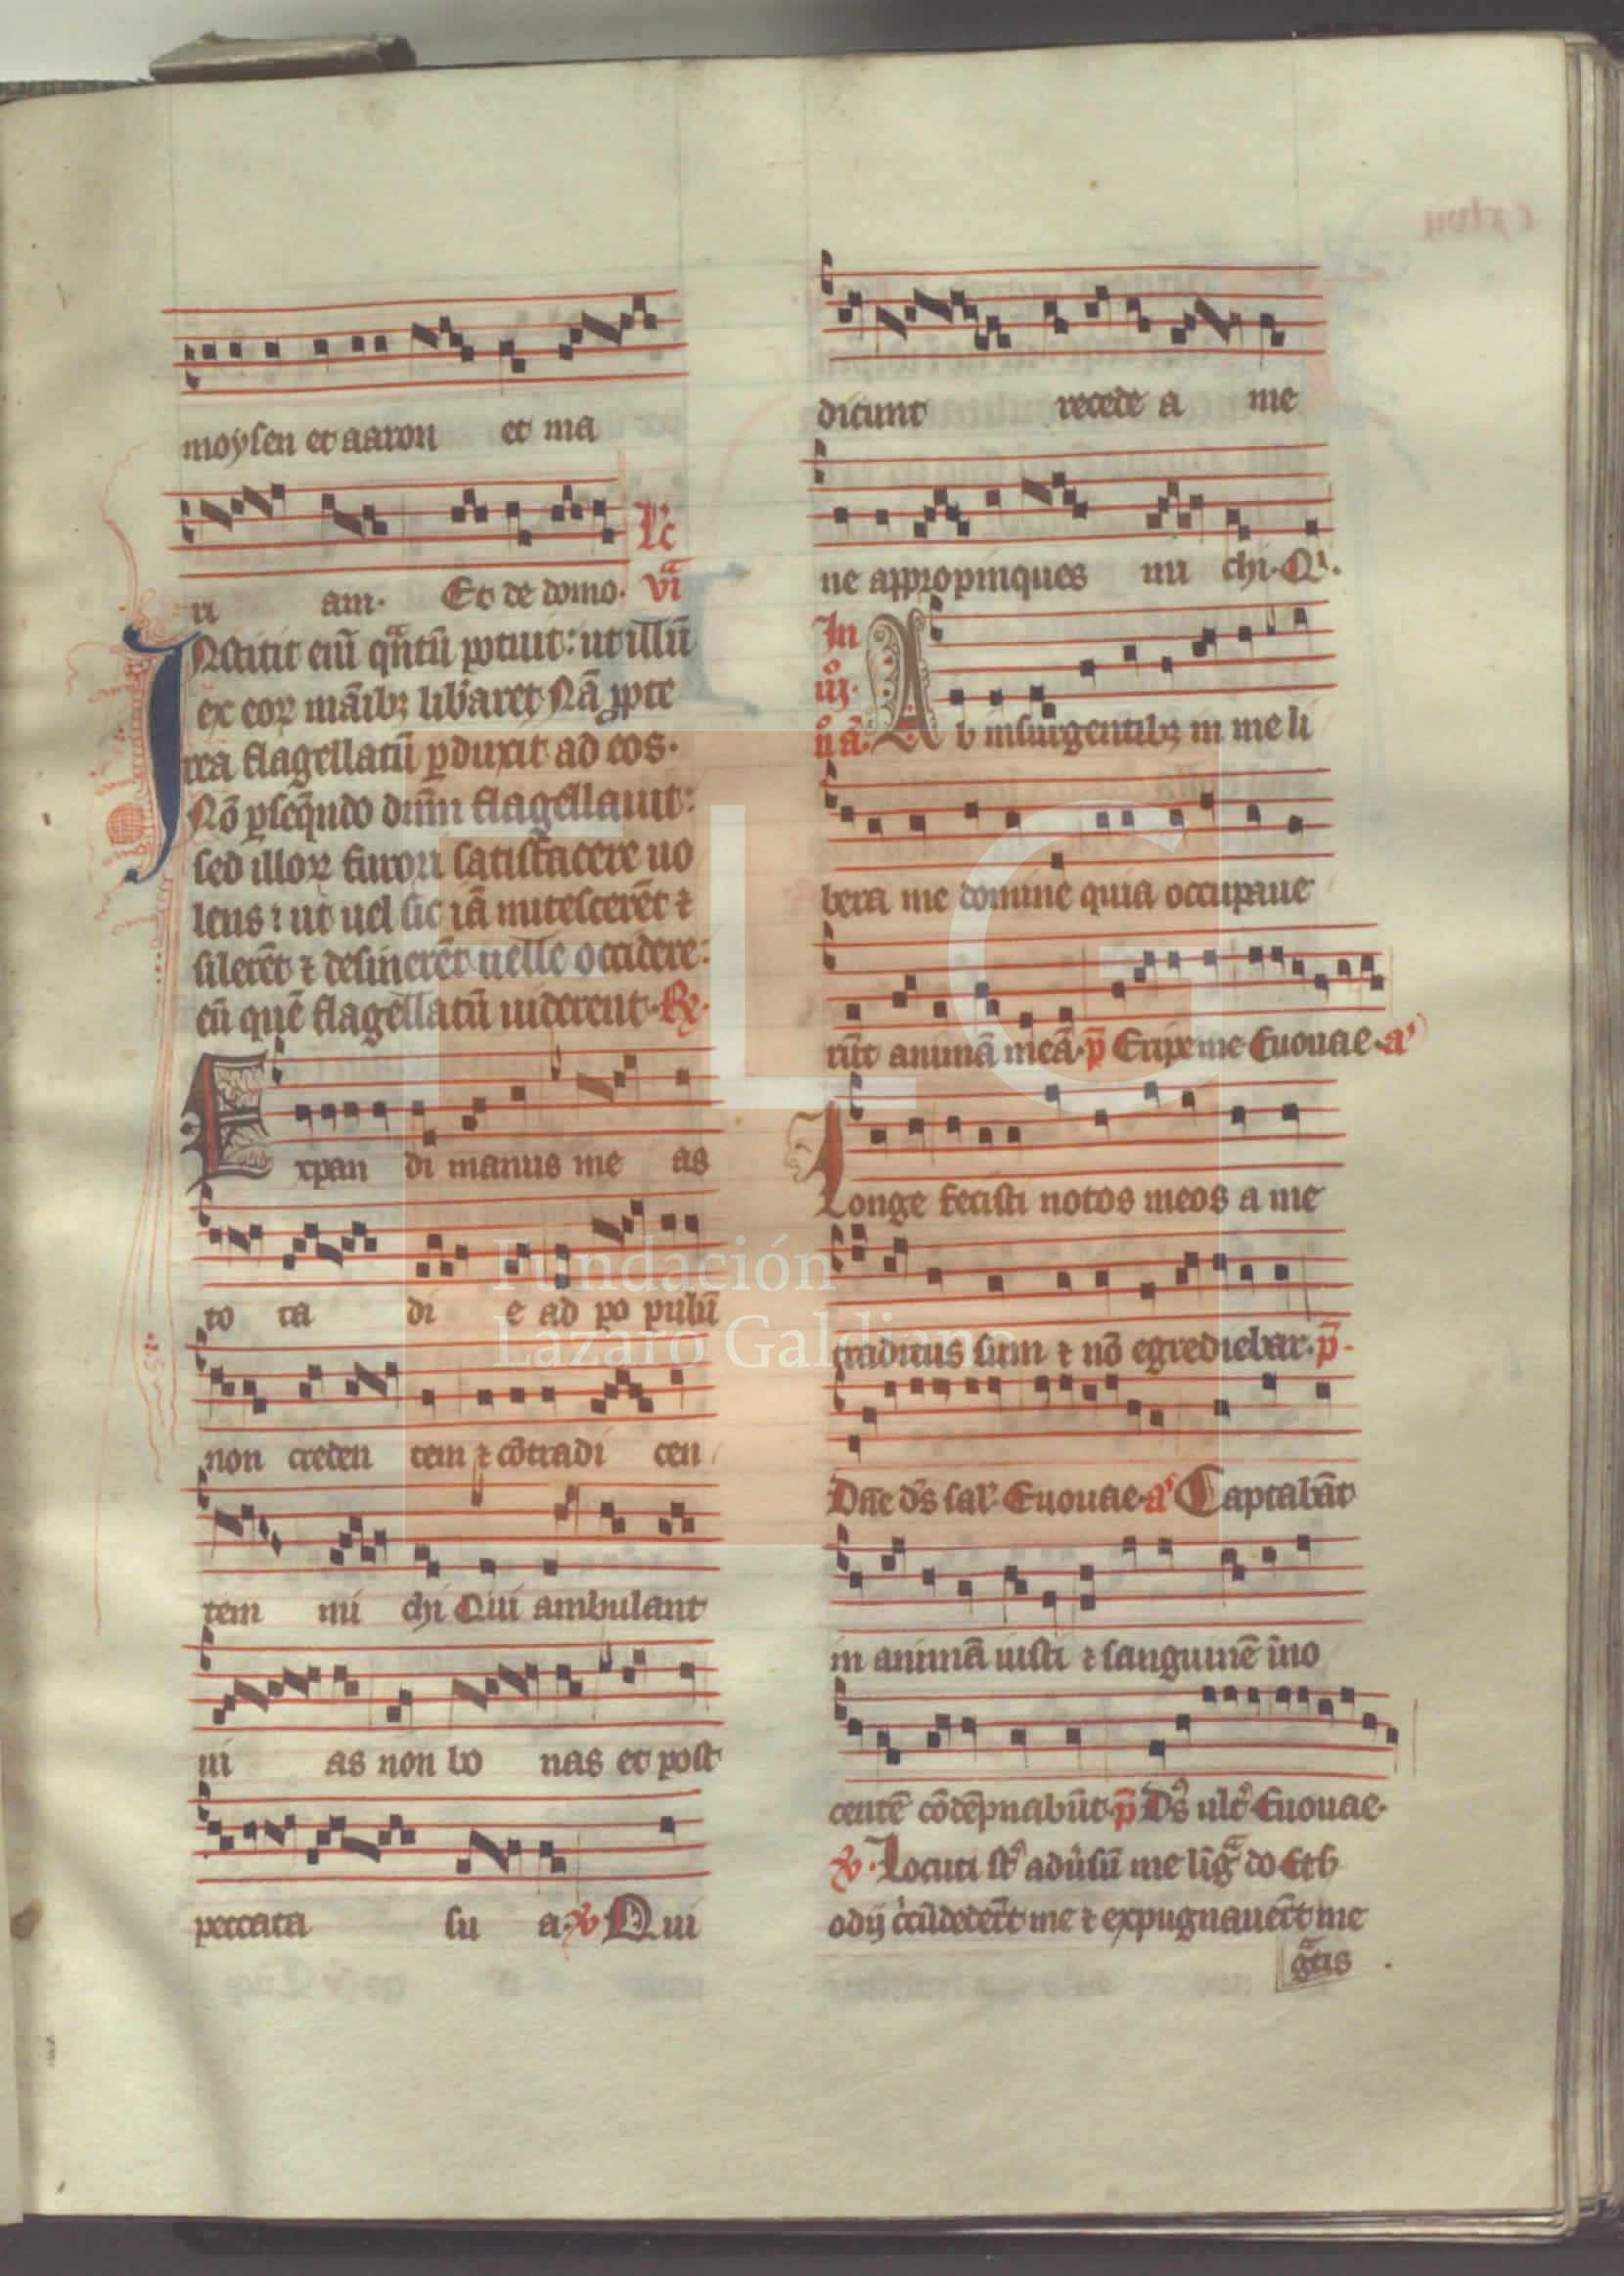 cxlvii
moysen et aaron et ma
ri am. Et de domo. Lc̄ via
INnitit eiū qͣntū potuit: ut illū
ex eoꝝ māibꝫ lib̾aret. Nā ꝓpte
rea flagellatū ꝓduxit ad eos.
Nō ꝑseq̄ndo dn̄m flagellauit:
sed illoꝝ furori satisfacere uo
lens: ut uel sic iā mitescerēt ⁊
silerēt ⁊ desinerēt uelle occidere:
eū quē flagellatū uiderent. R̄.
Expan di manus me as
to ta di e ad po pulū
non creden tem ⁊ cōtradi cen
tem mi chi Qui ambulant
ui as non bo nas et post
peccata su a. v Qui
dicunt recede a me
ne appropinques mi chi. Qi.
In iijͦ nͦ aͣ. Ab insurgentibꝫ in me li
bera me domine quia occupaue
rūt animā meā. p̄ Eripe me Euouae. a
Longe fecisti notos meos a me
traditus sum ⁊ nō egrediebar. p̄.
Dn̄e ds̄ sal. Euouae. a Captabāt
in animā iusti ⁊ sanguinē īno
centē cōdēpnabūt. p̄ Ds̄ ult̾ Euouae.
v. Locuti st̄ adu̾sū me līgͣ do Et ẜ
odij ci̾cūdederūt me ⁊ expugnauer̄t me
gͣtis
Fundación
Lázaro Galdiano
FLG